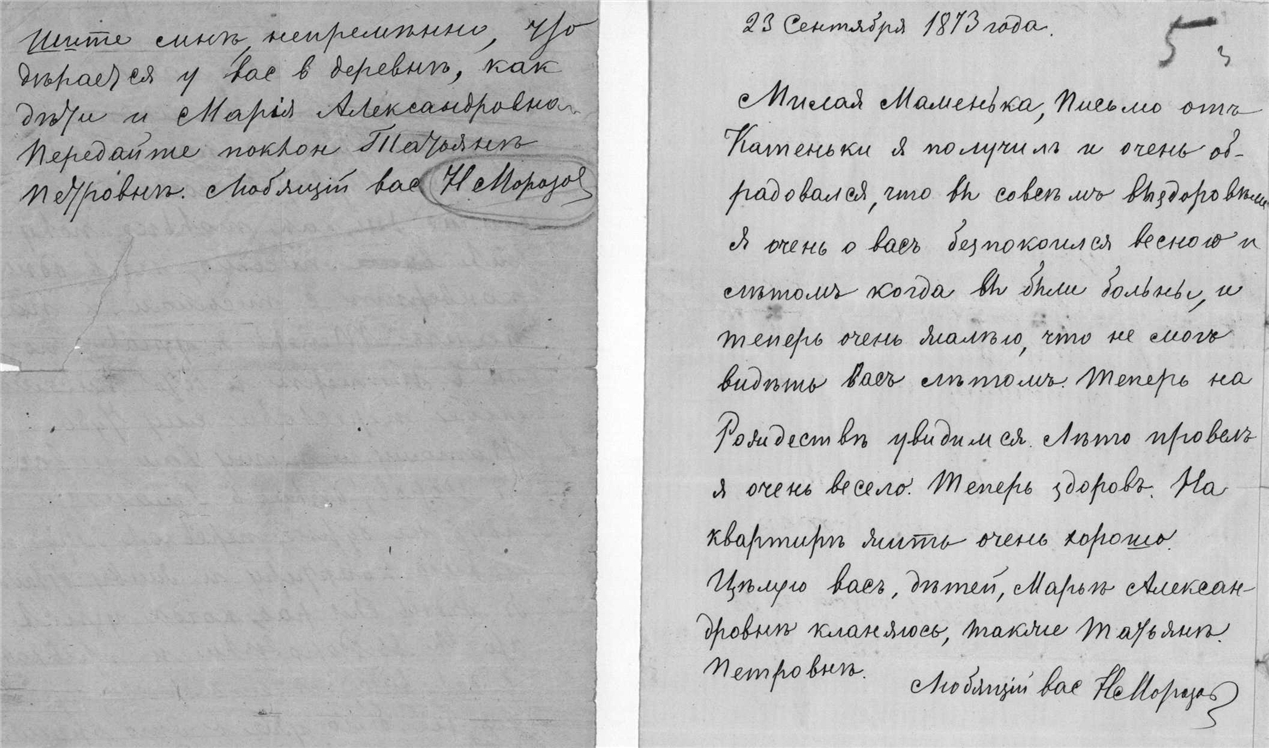 шите мнѣ, непремѣнно, что
дѣлается у вас в деревнѣ, как
дѣти и Марія Александровна
Передайте поклон Татьянѣ
Петровнѣ. Любящій вас Н. Морозов
23 Сентября 1873 года.
5
3
Милая Маменька, Письмо отъ
Катеньки я получилъ и очень об-
радовался, что вы совсѣмъ выздоровѣли
Я очень о васъ безпокоился весною и
лѣтомъ когда вы были больны, и
теперь очень жалѣю, что не могъ
видѣть васъ лѣтомъ. Теперь на
Рождествѣ увидимся. Лѣто провелъ
я очень весело. Теперь здоровъ. На
квартирѣ жить очень хорошо.
Цѣлую васъ, дѣтей, Марьѣ Алексан-
дровнѣ кланяюсь, также Татьянѣ
Петровнѣ.
Любящій вас Н. Морозов